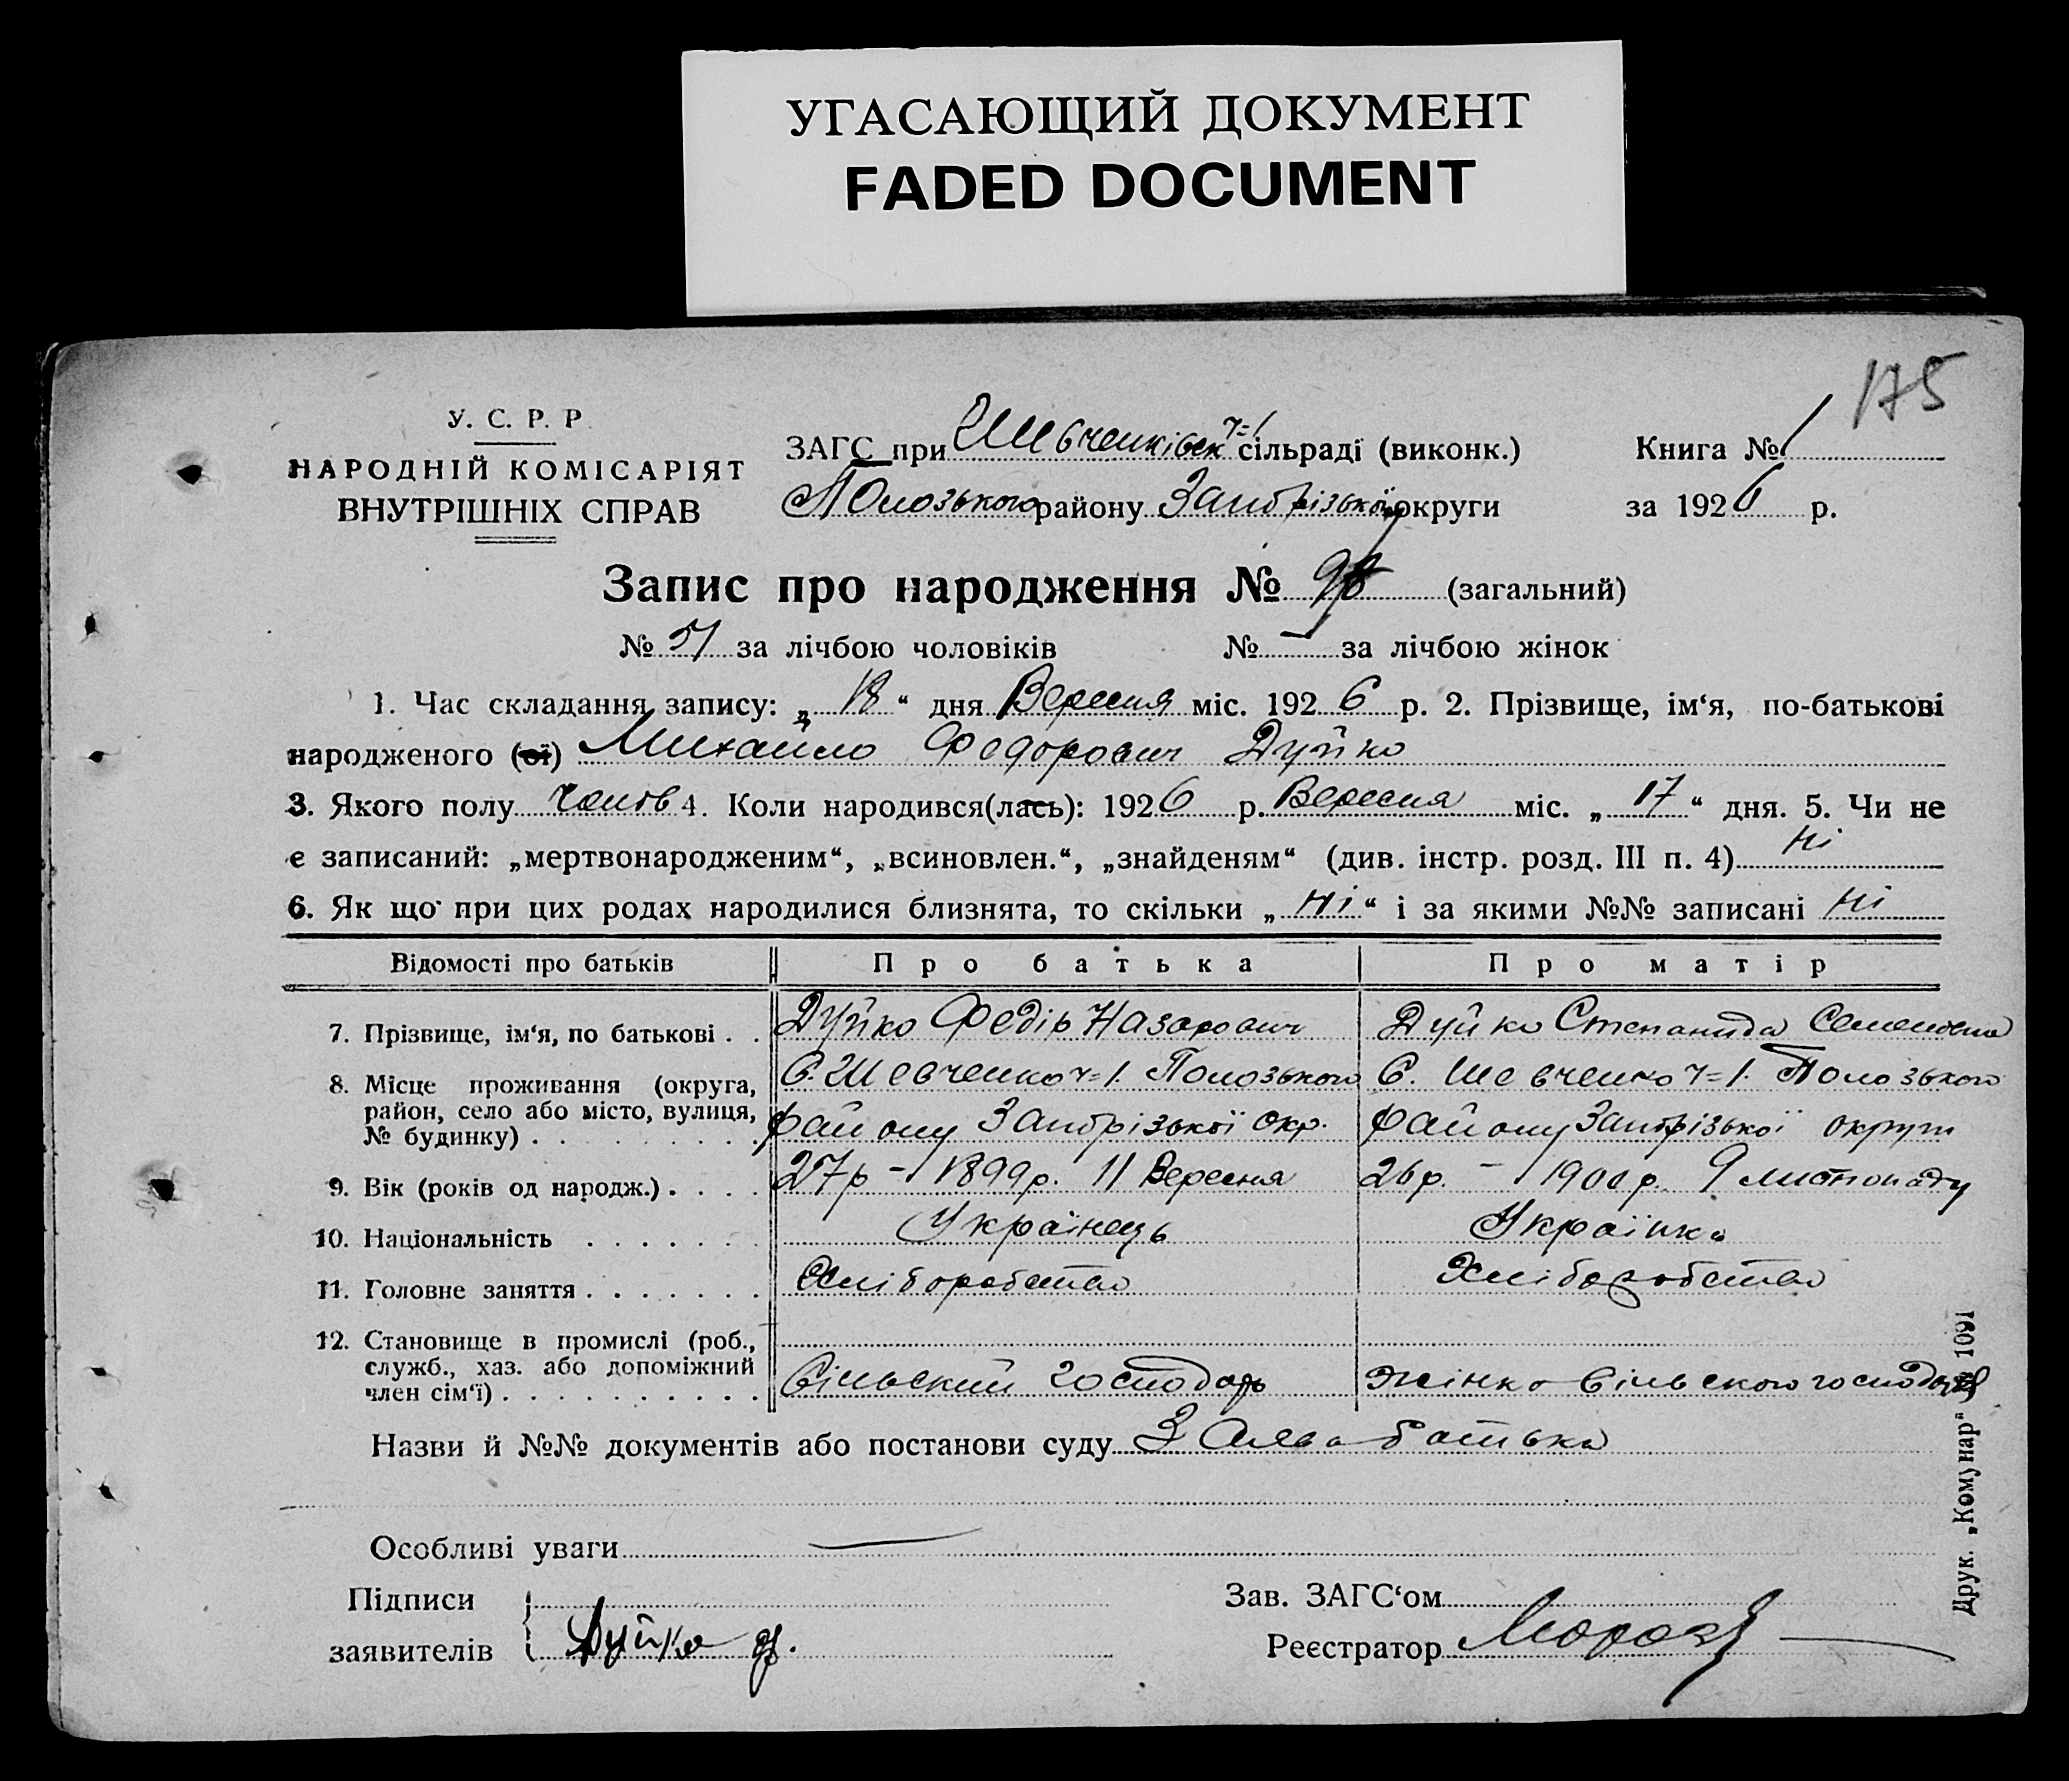 УГАСАЮЩИЙ ДОКУМЕНТ
FADED DOCUMENT
175
У. С. Р. Р.
НАРОДНІЙ КОМІСАРІЯТ
ВНУТРІШНІХ СПРАВ
ЗАГС при Шевченківск ч=1 сільраді (виконк.)
Полозького району Запорізької округи
Книга № 1
за 1926 р.
Запис про народження № (загальний)
№ 51 за лічбою чоловіків № — за лічбою жінок
1. Час складання запису: „ 18 “ дня Вересня міс. 1926 р. 2. Прізвище, ім‘я, по-батькові
народженого (ої) Михайло Федорович Дуйко
3. Якого полу чолов 4. Коли народився(лась): 1926 р. Вересня міс. „ 17 “ дня. 5. Чи не
є записаний: „мертвонародженим“, „всиновлен.“, „знайденям“ (див. інстр. розд. III п. 4) Ні
6. Як що при цих родах народилися близнята, то скільки „ Ні “ і за якими №№ записані Ні
Відомості про батьків Про батька Про матір
7. Прізвище, ім‘я, по батькові . . Дуйко Федір Назарович Дуйко Степанида Семеновна
8. Місце проживання (округа, район, село або місто, вулиця, № будинку) . . . . . . . . .
С. Шевченко ч=1. Полозького району Запорізької окр.
С. Шевченко ч=1. Полозького району Запорізької округи
9. Вік (років од народж.) . . . . 27р – 1899р. 11 Вересня 26р. – 1900р. 9 листопаду
10. Національність . . . . . . . Українець Українка
11. Головне заняття . . . . . . . Хліборобство Хліборобство
12. Становище в промислі (роб., служб., хаз. або допоміжний член сім‘ї) . . . . . . . . . .
Сільський господарь
жінка сільського господаря
Назви й №№ документів або постанови суду З слів батька
Особливі уваги —
Підписи
заявителів Дуйко Ф.
Зав. ЗАГС‘ом
Реєстратор Мороз
Друк. „Комунар“ № 1091